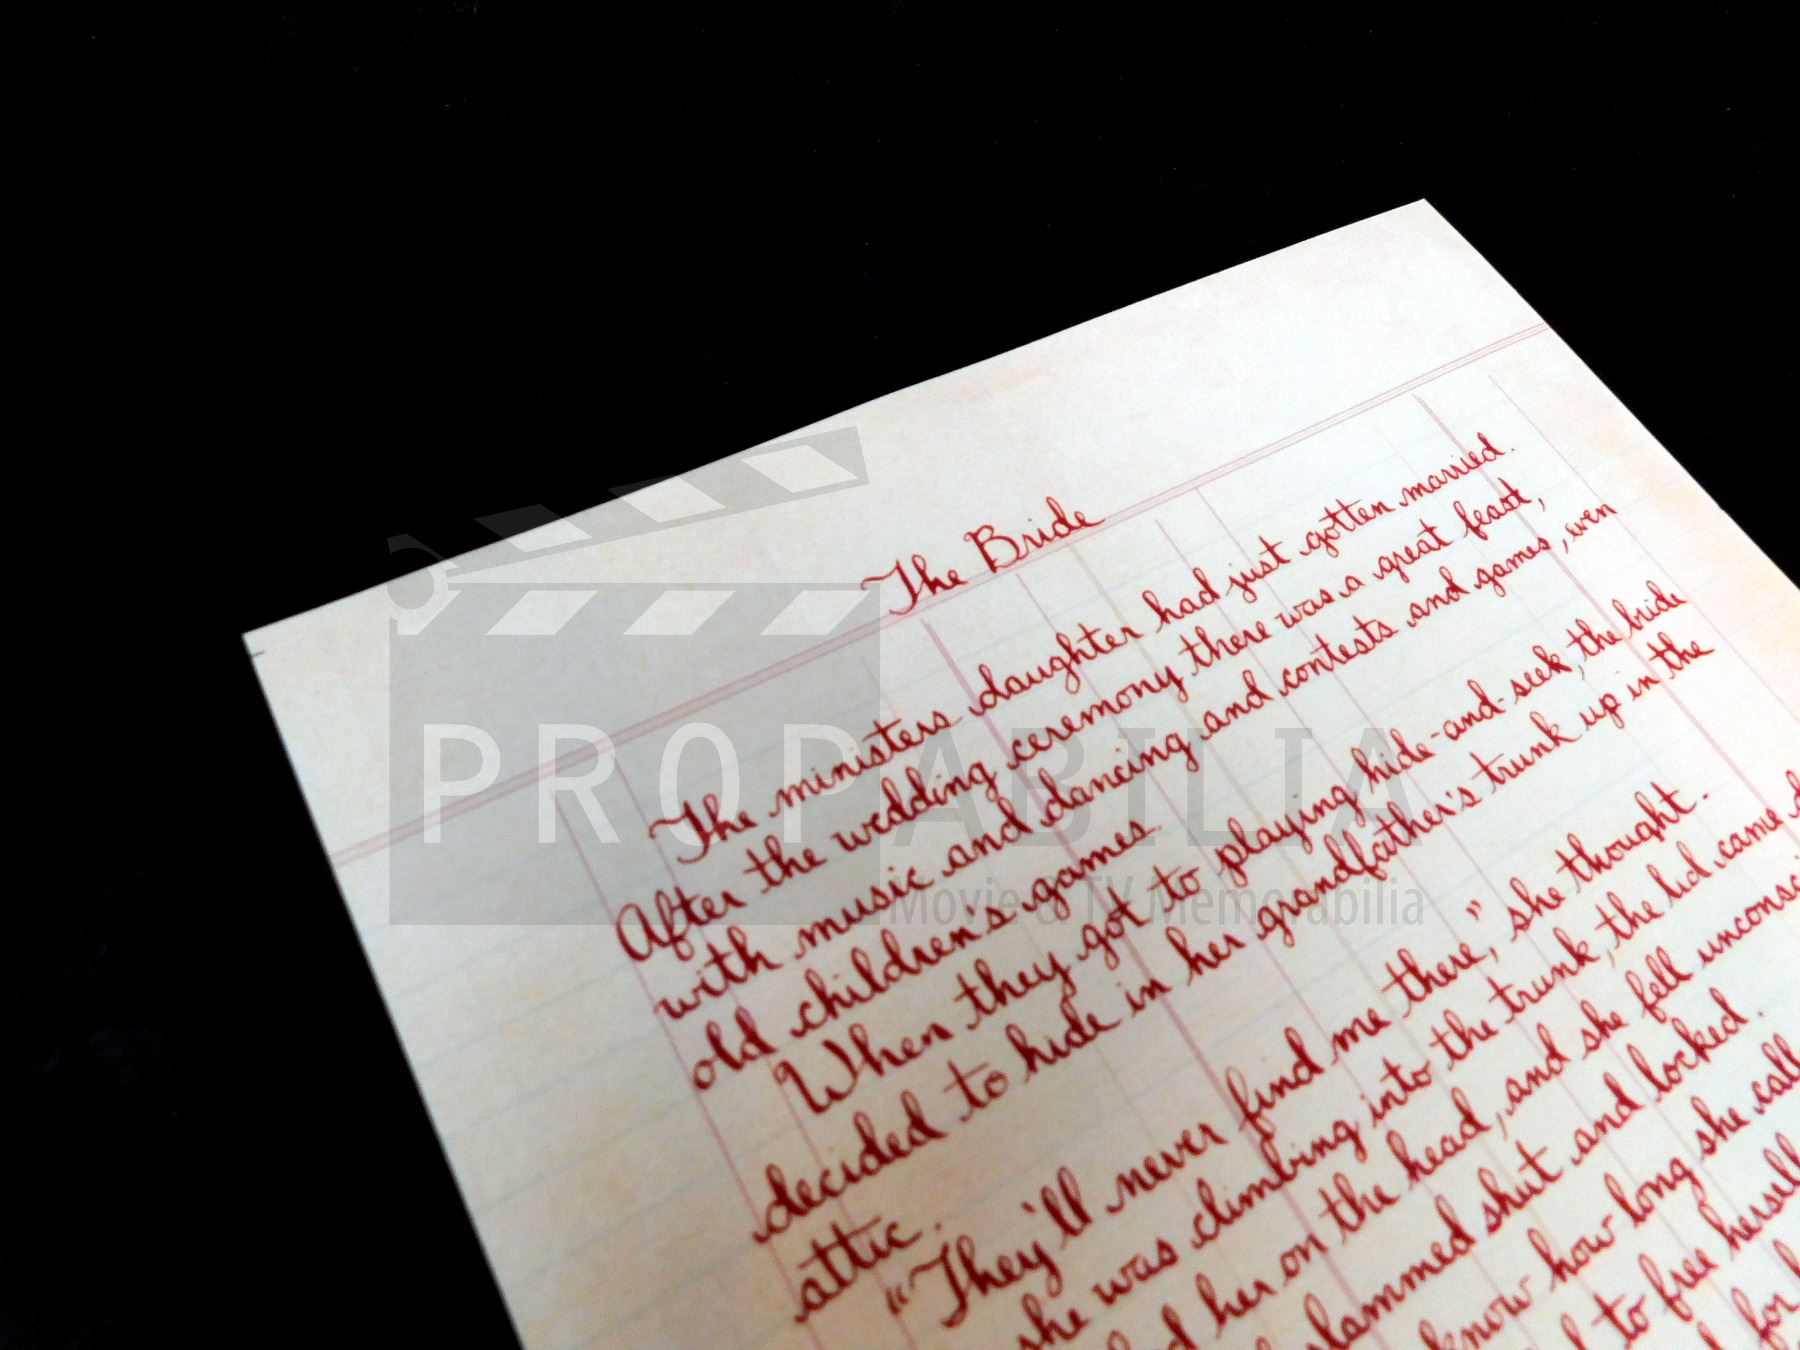 The Bride
The ministers daughter had just gotten married.
After the wedding ceremony there was a great feast,
with music and dancing and contests and games, even
old children's games.
When they got to playing hide-and-seek, the bride
decided to hide in her grandfather's trunk up in the
attic.
"They'll never find me there," she thought.
she was climbing into the trunk, the lid came
her on the head, and she fell
slammed shut and locked.
know how long she
to free
for
PROPABILIA
Movie & TV Memorabilia